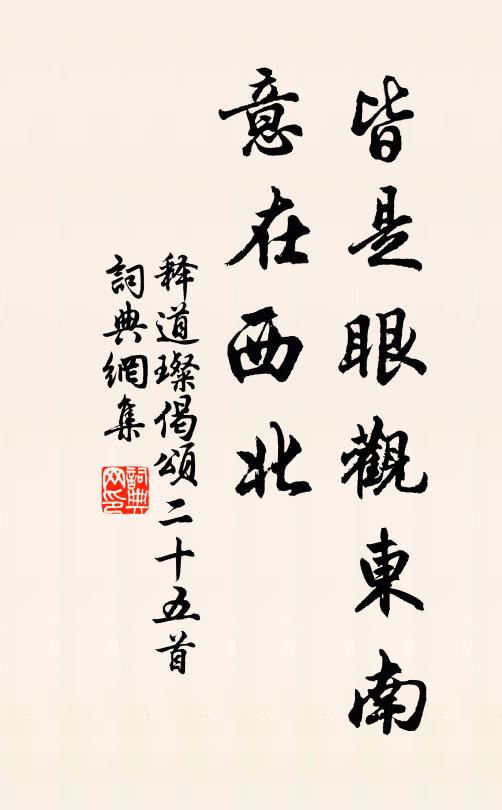 皆是眼觀東南
意在西北
释道璨偈頌二十五首
詞典網集
詞典網印